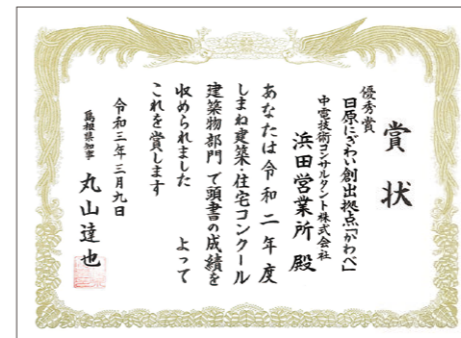 賞状
優秀賞
日原にぎわい創出拠点「かわべ」
中電技術コンサルタント株式会社
浜田営業所 殿
あなたは令和二年度
しまね建築・住宅コンクール
建築物部門で頭書の成績を
収められました よって
これを賞します
令和三年三月九日
島根県知事 丸山達也